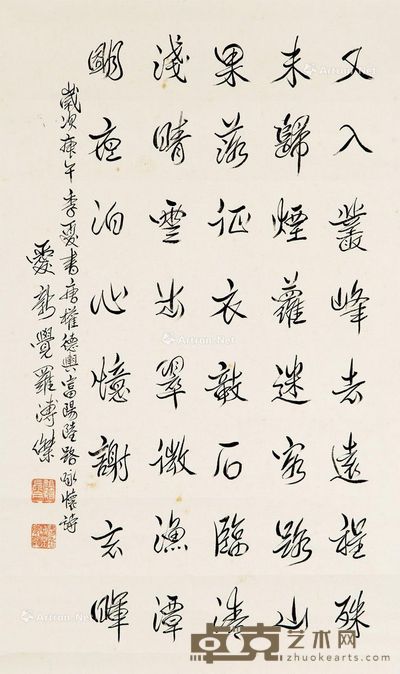 又入叢峰去遠程殊
未歸煙蘿迷客路山
果落征衣敧石臨清
淺晴雲出翠微漁潭
朙夜泊心憶謝玄暉
歲次庚午季夏書唐權德輿富陽陸路詠懷詩
愛新覺羅溥傑
Artron.Net
卓克艺术网
www.zhuokearts.com